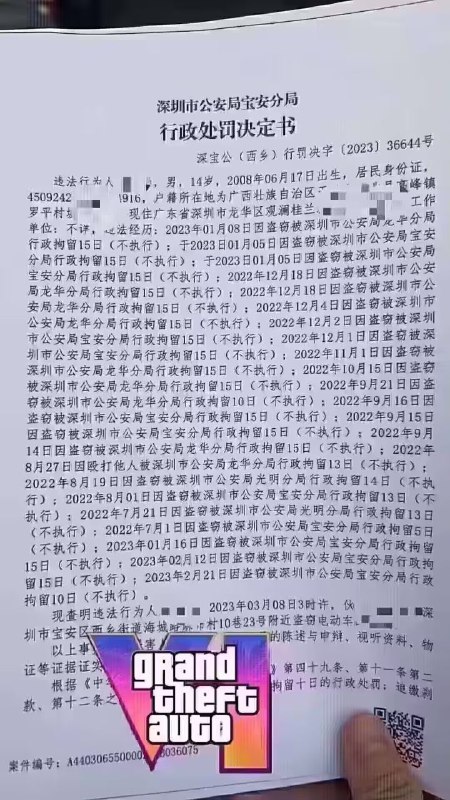 深圳市公安局宝安分局
行政处罚决定书
深宝公（西乡）行罚决字〔2023〕36644号
违法行为人 男，14岁，2008年06月17日出生，居民身份证，
4509242 1916，户籍所在地为广西壮族自治区 高峰镇
罗平村 现住广东省深圳市龙华区观澜桂兰 工作
单位：不详，违法经历：2023年01月08日因盗窃被深圳市公安局龙华分局
行政拘留15日（不执行）；于2023年01月05日因盗窃被深圳市公安局宝安
分局行政拘留15日（不执行）；于2023年01月05日因盗窃被深圳市公安局
宝安分局行政拘留15日（不执行）；2022年12月18日因盗窃被深圳市公安
局龙华分局行政拘留15日（不执行）；2022年12月18日因盗窃被深圳市公安
局龙华分局行政拘留15日（不执行）；2022年12月4日因盗窃被深圳市
公安局龙华分局行政拘留15日（不执行）；2022年12月2日因盗窃被深圳市
公安局宝安分局行政拘留15日（不执行）；2022年12月1日因盗窃被深
圳市公安局宝安分局行政拘留15日（不执行）；2022年11月1日因盗窃被
深圳市公安局龙华分局行政拘留15日（不执行）；2022年10月15日因盗窃
被深圳市公安局龙华分局行政拘留10日（不执行）；2022年9月21日因盗
窃被深圳市公安局宝安分局行政拘留15日（不执行）；2022年9月16日因
盗窃被深圳市公安局龙华分局行政拘留15日（不执行）；2022年9月15日
因盗窃被深圳市公安局宝安分局行政拘留15日（不执行）；2022年9月
14日因盗窃被深圳市公安局龙华分局行政拘留15日（不执行）；2022年
8月27日因殴打他人被深圳市公安局龙华分局行政拘留13日（不执行）；
2022年8月19日因盗窃被深圳市公安局光明分局行政拘留14日（不执
行）；2022年8月01日因盗窃被深圳市公安局宝安分局行政拘留13日（不
执行）；2022年7月21日因盗窃被深圳市公安局光明分局行政拘留13日
（不执行）；2022年7月1日因盗窃被深圳市公安局宝安分局行政拘留5日
（不执行）；2023年01月16日因盗窃被深圳市公安局宝安分局行政拘留
15日（不执行）；2023年02月12日因盗窃被深圳市公安局宝安分局行政拘
留15日（不执行）；2023年2月21日因盗窃被深圳市公安局宝安分局行政
拘留10日（不执行）。
现查明违法行为人 2023年03月08日3时许， 深
圳市宝安区西乡街道海城 村10巷23号附近盗窃电动车
以上事 的陈述与申辩、视听资料、物
证等证据证实
根据《中 》第四十九条、第十一条第二
款、第十二条之 拘留十日的行政处罚；追缴
VI
grand
theft
auto
案件编号：A44030655000 036075